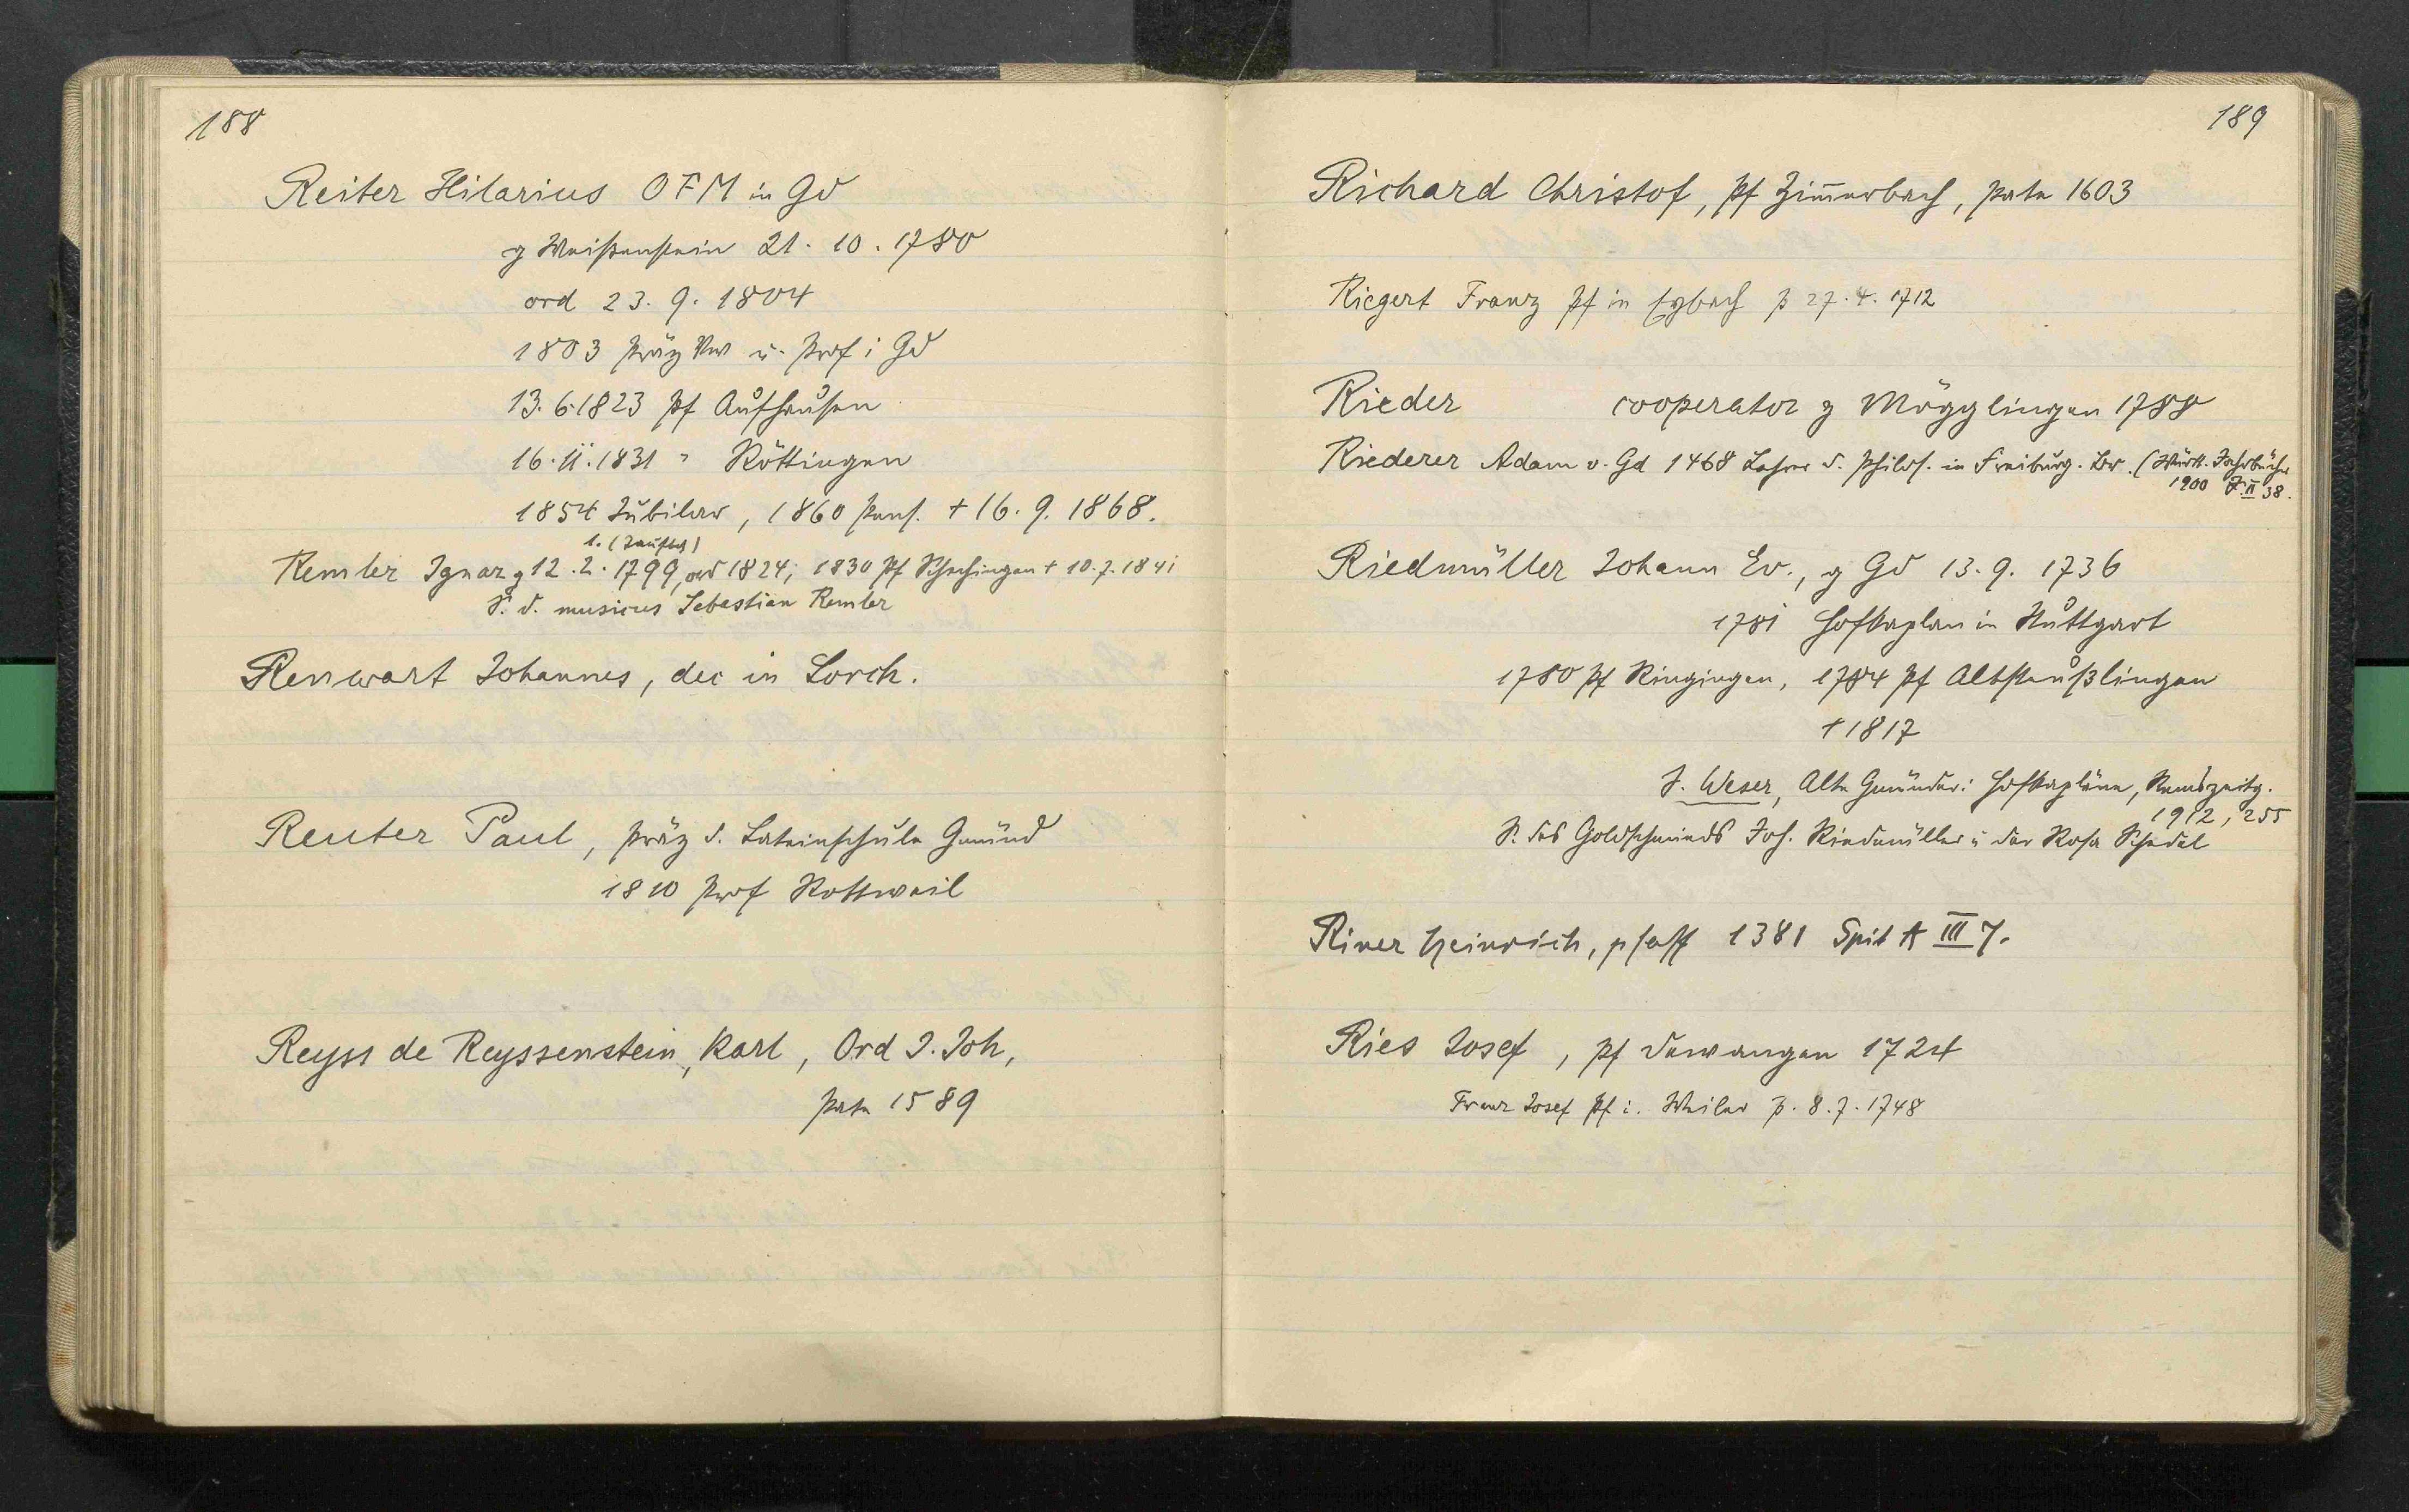 188
Reiter Hilarius OFM in Gd
g Weißenstein 21. 10. 1780
ord 23. 9. 1804
1803 Präz u. Prof i Gd
13. 6 1823 Pf Aufhausen
16. 11. 1831 " Röttingen
1854 Jubilar, 1860 Pens. + 16. 9. 1868.
1. (Taufbch)
Remler Ignaz g 12. 2. 1799, ord 1824; 1830 Pf Schechingen + 10. 7. 1841
S. d. musicus Sebastian Remler
Renwart Johannes, dec in Lorch.
Reuter Paul, Präz d. Lateinschule Gmünd
1810 Prof Rottweil
Reyss de Reyssenstein, Karl, Ord S. Joh,
Pate 1589
189
Richard Christof, Pf Zim̅erbach, Pate 1603
Riegert Franz Pf in Eybach p 27. 4. 1712
Rieder cooperator z Mögglingen 1788
Riederer Adam v. Gd 1468 Lehrer d. Philos. in Freiburg. Br. (Württ. Jahrbücher
1900 II 38.
Riedmüller Johann Ev., g Gd 13. 9. 1736
1781 Hofkaplan in Stuttgart
1780 Pf Ringingen, 1784 Pf Altsteußlingen
+ 1817
J. Weser, Alte Gmünder: Hofkapläne, Remszeitg.
1912, 255
S. des Goldschmieds Jos. Riedmüller u der Rosa Schedel
Riner Heinrich, pfaff 1381 Spit A III 7.
Ries Josef, Pf Dewangen 1724
Franz Josef Pf i. Weiler p. 8. 7. 1748